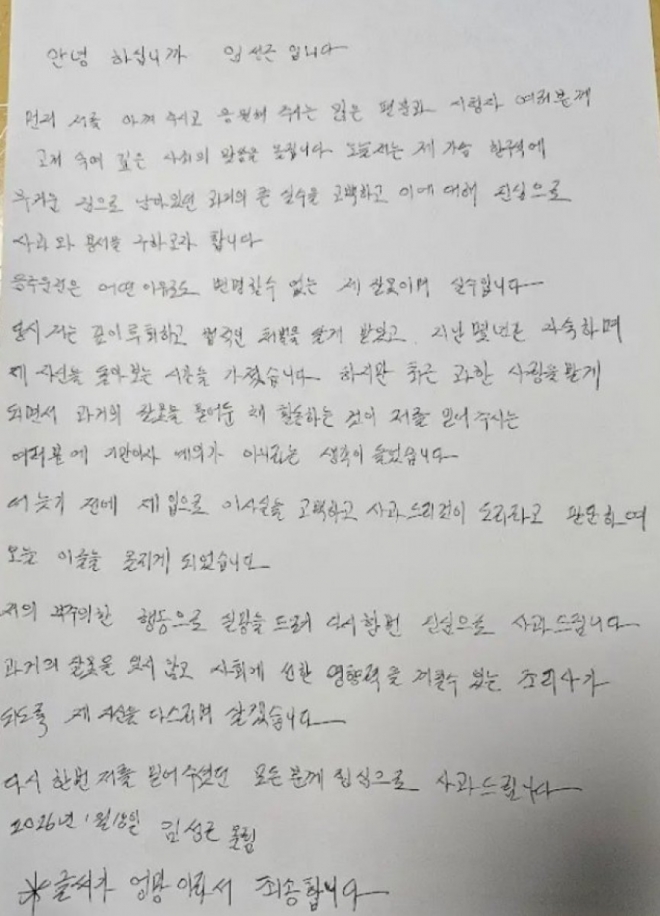 안녕 하십니까 임성근 입니다
먼저 저를 아껴 주시고 응원해 주시는 많은 팬분과 시청자 여러분께
고개 숙여 깊은 사죄의 말씀을 올립니다 오늘 저는 제 가슴 한구석에
무거운 짐으로 남아있던 과거의 큰 실수를 고백하고 이에 대해 진심으로
사과와 용서를 구하고자 합니다
음주운전은 어떤 이유로도 변명할수 없는 제 잘못이며 실수입니다
당시 저는 깊이 후회하고 법적인 처벌을 달게 받았고. 지난 몇년간 자숙하며
제 자신을 돌아보는 시간을 가졌습니다 하지만 최근 과한 사랑을 받게
되면서 과거의 잘못을 묻어둔 채 활동하는 것이 저를 믿어주시는
여러분에 기만이자 예의가 아니라는 생각이 들었습니다
더 늦기 전에 제 입으로 이사실을 고백하고 사과드리것이 도리라고 판단하여
오늘 이글을 올리게 되었습니다
저의 부주의한 행동으로 실망을 드려 다시한번 진심으로 사과드립니다
과거의 잘못을 잊지 않고 사회에 선한 영향력을 끼칠수 있는 조리사가
되도록 제 자신을 다스리며 살겠습니다
다시 한번 저를 믿어 주셨던 모든 분께 진심으로 사과드립니다
2026년 1월 18일 임성근 올림
*글씨가 엉망이라서 죄송합니다